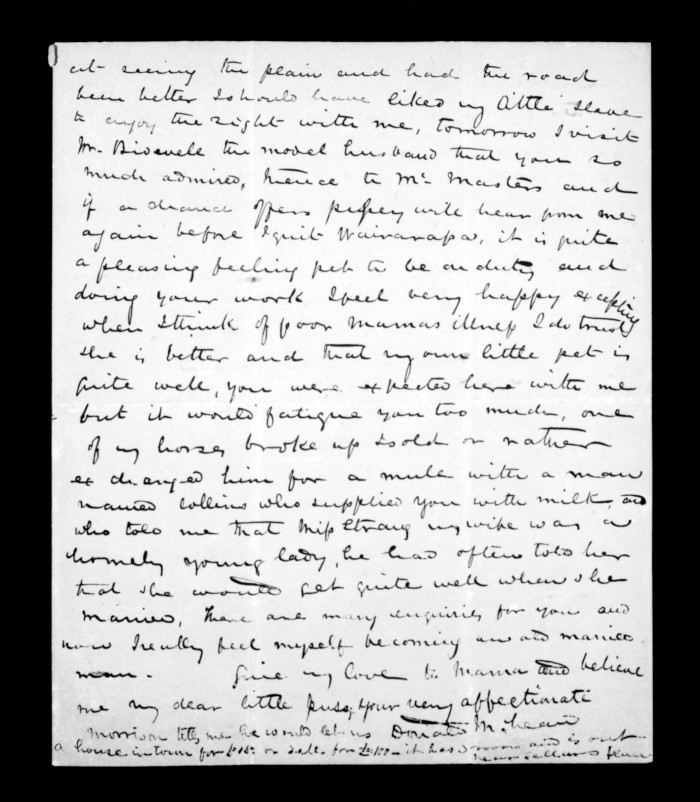 at seeing the plain and had the road
been better I should have liked my little slave
to enjoy the sight with me, tomorrow I visit
Mr. Bidwell the model husband that you so
much admired, hence to Mc Masters and
if a chance offers pussey will hear from me
again before I quit Wairarapa, it is quite
a pleasing feeling pet to be on duty and
doing your work I feel very happy excepting
when I think of poor Mamas illness I do trust
she is better and that my own little pet is
quite well, you were expected here with me
but it would fatigue you too much, one
of my horses broke up I sold or rather
exchanged him for a mule with a man
named Collins who supplied you with milk, and
who told me that Miss Strang my wife was a
homely young lady, he had often told her
that she would get quite well when she
married, There are many enquiries for you and
now I really feel myself becoming an old married
man. Give my love to Mama and believe
me my dear little pussy your very affectionate
Donald McLean
Morrison tells me he would let us
a house in town for or sale for it has rooms and is out
near